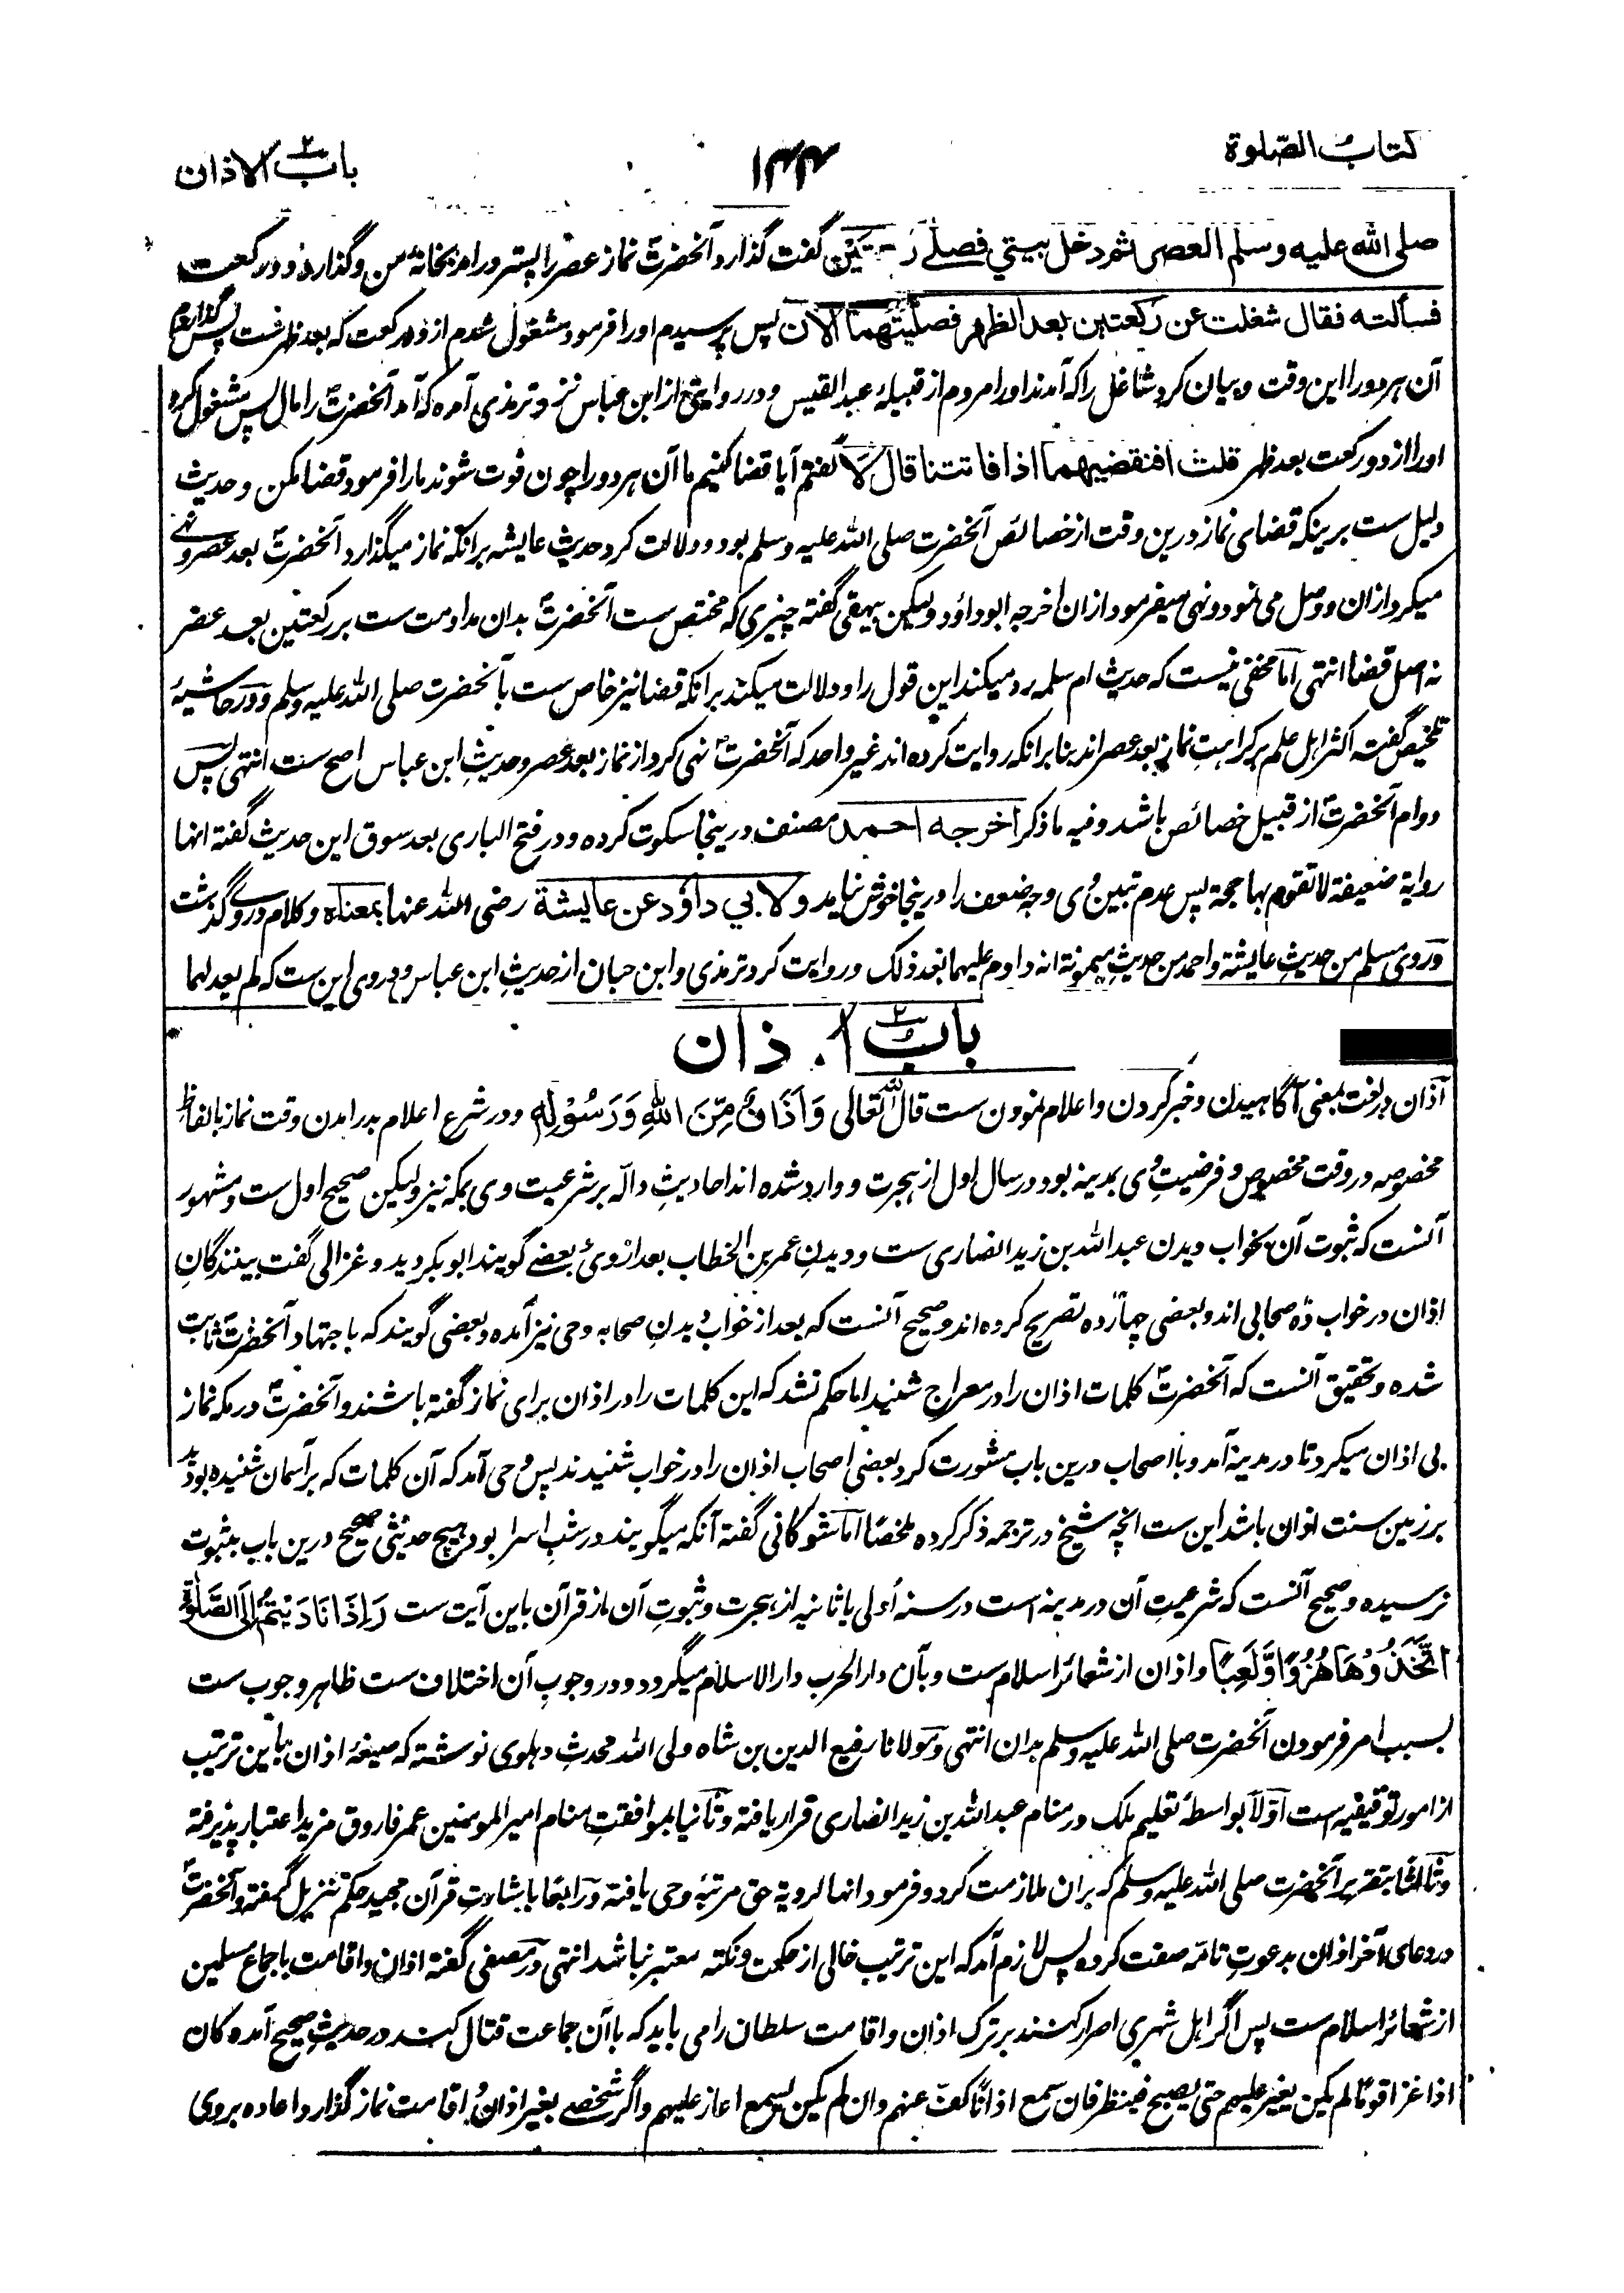 کتاب الصّلوة
باب ٢ الاذان
صلی الله علیه وسلم العصر ثم دخل بیتي فصلے گفت گذارد آنحضرتؐ نماز عصر را پستر در امد بخانهٔ من و گذارد دو رکعت
فسألته فقال شغلت عن رکعتین بعد الظهر فصلیتُهما الآن پس پرسیدم او را فرمود مشغول شدم از دو رکعت که بعد ظهرست پس گذاردم
آن هر دو را این وقت و بیان کرد شاغل را که آمدند او را مردم از قبیلهٔ عبد القیس و در روایتے از ابن عباس نزد ترمذی آمده که آمد آنحضرتؐ را مال پس مشغول کرد
او را از دو رکعت بعد ظهر قلت افنقضیهما اذا فاتتنا قال لا گفتم آیا قضا کنیم ما آن هر دو را چون فوت شوند ما را فرمود قضا مکن و حدیث
دلیل ست برینکه قضای نماز درین وقت از خصائص آنحضرت صلی الله علیه وسلم بود و دلالت کرد حدیث عایشه برانکه نماز میگذارد آنحضرتؐ بعد عصر و نهے
میکرد ازان و وصل می نمود و نهی میفرمود ازان اخرجه ابو داؤد ولیکن بیهقی گفته چیزی که مختص ست آنحضرتؐ بدان مداومت ست بر رکعتین بعد عصر
نه اصل قضا انتهی اما مخفی نیست که حدیث ام سلمه رد میکند این قول را و دلالت میکند برانکه قضا نیز خاص ست بآنحضرت صلی الله علیه وسلم و در حاشیهٔ
تلخیص گفت اکثر اهل علم بر کراهت نماز بعد عصر اند بنا برانکه روایت کرده اند غیر واحد که آنحضرتؐ نهی کرد از نماز بعد عصر و حدیثِ ابن عباس اصح ست انتهی پس
دوام آنحضرتؐ از قبیل خصائص باشد و فیه ما ذکر اخرجه احمد مصنف درینجا سکوت کرده و در فتح الباری بعد سوق این حدیث گفته انها
روایة ضعیفة لا تقوم بها حجة پس عدم تبیین وی وجه ضعف را درینجا خوش نیامد ولابي داؤد عن عایشة رضی الله عنها بمعناه و کلام دروے گذشت
و روی مسلم من حدیثِ عایشة و احمد من حدیثِ میمونة انه داوم علیهما بعد ذلک و روایت کرد ترمذی و ابن حبان از حدیثِ ابن عباس و دروی این ست که لم یعد لهما
باب ٢ ا ذان
آذان در لغت بمعنی آگاهیدن و خبر کردن و اعلام نمودن ست قال الله تعالی وَاَذَانٌ مِّنَ اللهِ وَرَسُوْلِهٖ و در شرع اعلام بدر امدن وقت نماز بالفاظ
مخصوصه در وقت مخصوص و فرضیتِ وی بمدینه بود در سال اول از هجرت و وارد شده اند احادیثِ دالّه بر شرعیت وی بمکه نیز ولیکن صحیح اول ست و مشهور
آنست که ثبوت آن بخواب دیدن عبد الله بن زید انصاری ست و دیدنِ عمر بن الخطاب بعد از وی و بعضے گویند ابو بکر دید و غزالی گفت بینندگانِ
اذان در خواب ده صحابی اند و بعضی چهارده تصریح کرده اند و صحیح آنست که بعد از خواب دیدنِ صحابه وحی نیز آمده و بعضی گویند که باجتهاد آنحضرتؐ ثابت
شده و تحقیق آنست که آنحضرتؐ کلمات اذان را در معراج شنید اما حکم نشد که این کلمات را در اذان برای نماز گفته باشند و آنحضرتؐ در مکه نماز
بی اذان میکرد تا در مدینه آمد و با اصحاب درین باب مشورت کرد بعضی اصحاب اذان را در خواب شنیدند پس وحی آمد که آن کلمات که بر آسمان شنیده بود
بر زمین سنت اذان باشد این ست انچه شیخ در ترجمه ذکر کرده ملخصًا اما شوکانی گفته آنکه میگویند در شبِ اسرا بود هیچ حدیثی صحیح درین باب بثبوت
نرسیده و صحیح آنست که شرعیتِ آن در مدینه است در سنه أولی یا ثانیه از هجرت و ثبوتِ آن از قرآن باین آیت ست وَاِذَا نَادَیْتُمْ اِلَی الصَّلٰوةِ
اتَّخَذُوْهَا هُزُوًا وَّلَعِبًا و اذان از شعائر اسلام ست و بآن دار الحرب دار الاسلام میگردد و در وجوبِ آن اختلاف ست ظاهر وجوب ست
بسبب امر فرمودن آنحضرت صلی الله علیه وسلم بدان انتهی و مولانا رفیع الدین بن شاه ولی الله محدثِ دهلوی نوشته که صیغهٔ اذان باین ترتیب
از امور توقیفیه است اوّلًا بواسطهٔ تعلیم ملک در منام عبد الله بن زید انصاری قرار یافته و ثانیا بموافقتِ منام امیر المومنین عمر فاروق مزید اعتبار پذیرفته
و ثالثًا بتقریر آنحضرت صلی الله علیه وسلم که بران ملازمت کرد و فرمود انها لرویة حق مرتبهٔ وحی یافته و رابعًا باشارتِ قرآن مجید حکم تنزیل گرفته و آنحضرتؐ
در دعای آخر اذان بدعوتِ تامّه صفت کرده پس لازم آمد که این ترتیب خالی از حکمت و نکته معتبر نباشد انتهی در مصفی گفته اذان و اقامت باجماع مسلمین
از شعائر اسلام ست پس اگر اهل شهری اصرار کنند بر ترک اذان و اقامت سلطان را می باید که با آن جماعت قتال کند در حدیثِ صحیح آمده کان
اذا غزا قومًا لم یکن یغیر علیهم حتی یصبح فینظر فان سمع اذانًا کفّ عنهم وان لم یکن یسمع اغار علیهم و اگر شخصے بغیر اذان و اقامت نماز گذارد اعاده بروی